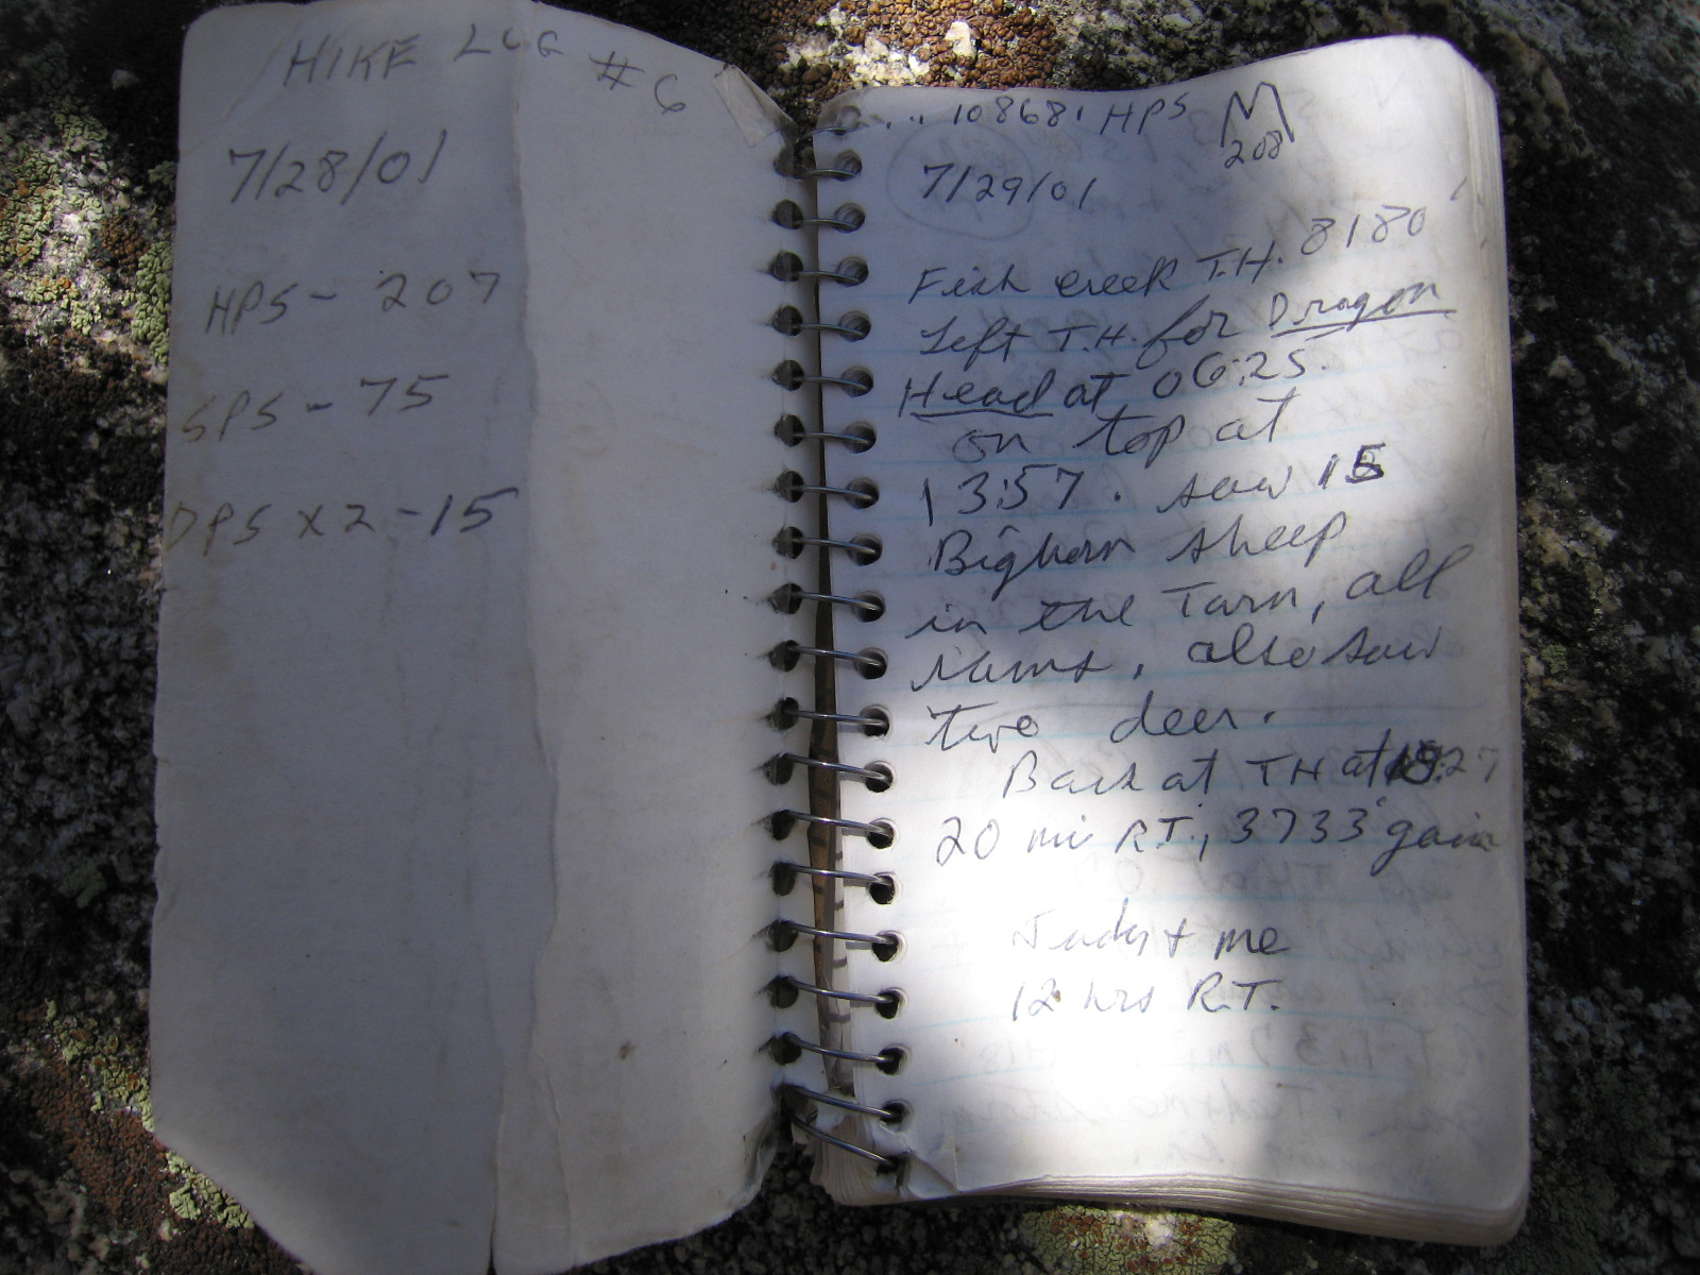 HIKE LOG #6
7/28/01
HPS - 207
SPS - 75
DPS X2 - 15
108681 HPS M
208
7/29/01
Fish creek T.H. 8180'
Left T.H. for Dragon
Head at 06:25.
on top at
13:57. saw 15
Bighorn sheep
in the Tarn, all
rams. also saw
two deer.
Back at TH at :27
20 mi R.T., 3733' gain
+ me
12 hrs R.T.